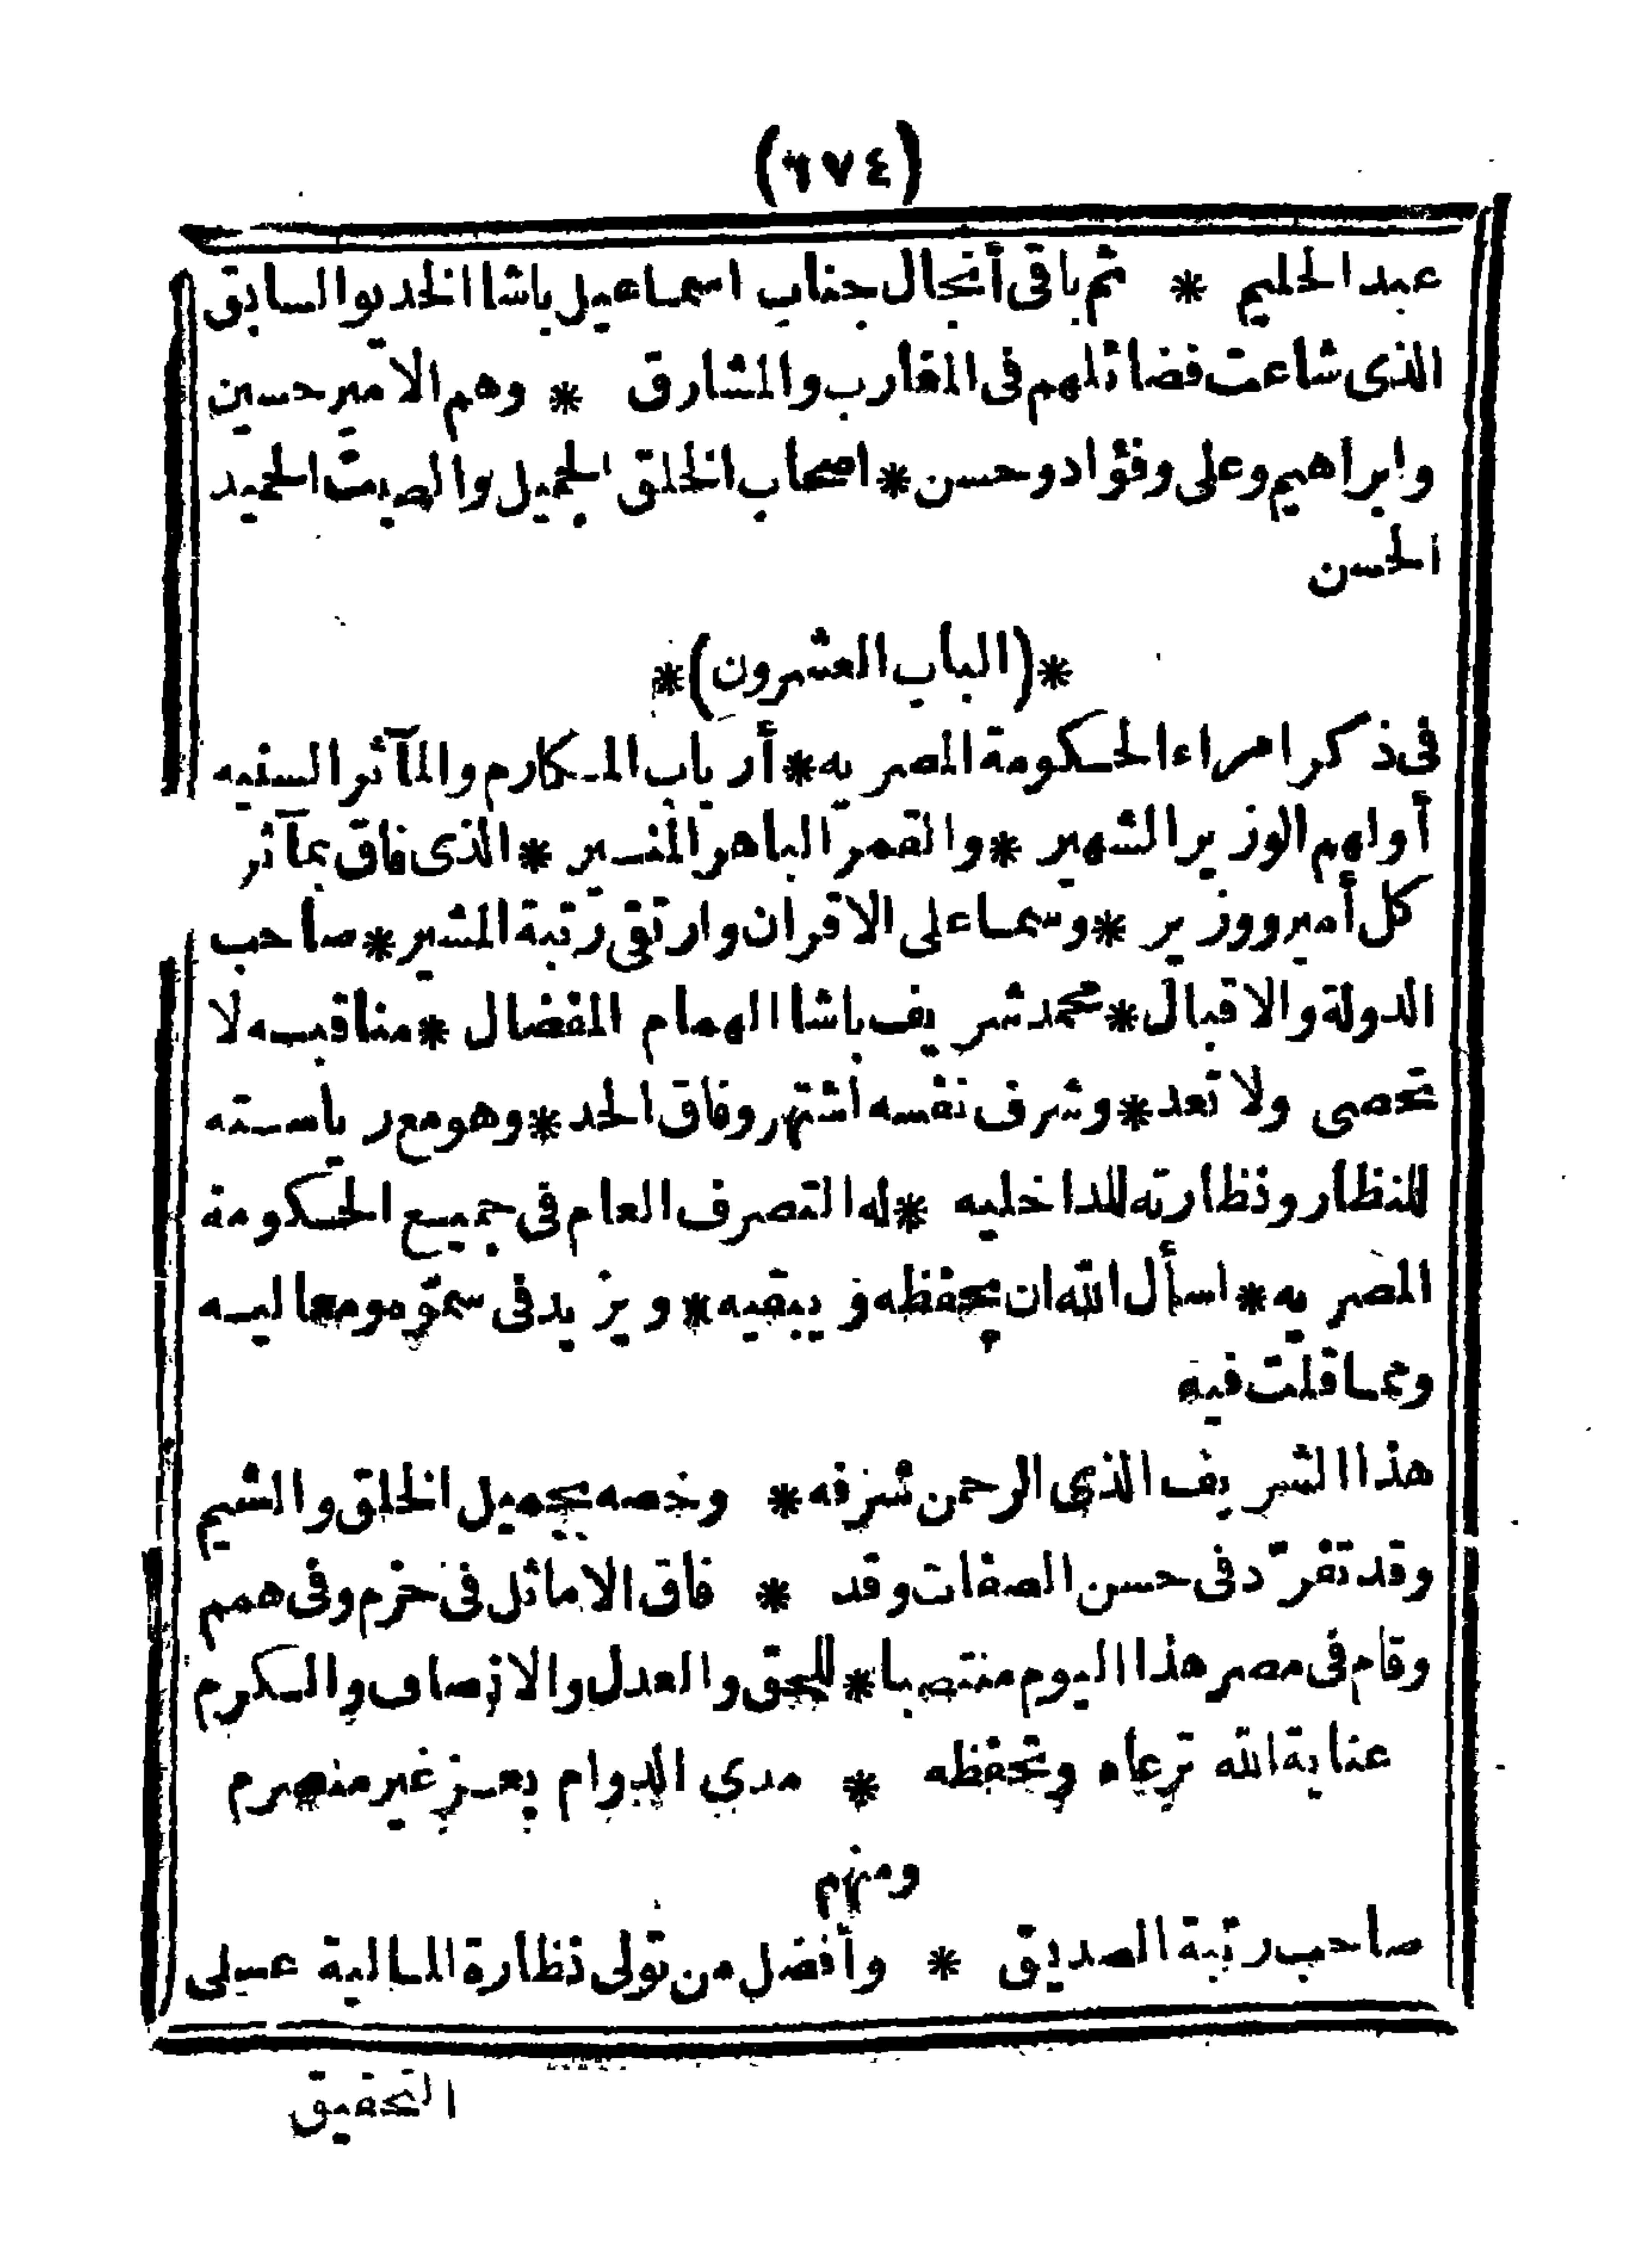 (٦٧٤)
عبد الحليم * ثم باقى أنجال جناب اسماعيل باشا الخديو السابق
الذى شاعت فضائلهم فى المغارب والمشارق * وهم الامير حسين
وابراهيم وعلى وفؤاد وحسن * اصحاب الخلق الجميل والصيت الحميد
الحسن
*(الباب العشرون)*
فى ذكر امراء الحكومة المصريه * أرباب المكارم والمآثر السنيه
أولهم الوزير الشهير * والقمر الباهر المنير * الذى فاق بمآثر
كل أمير ووزير * وسما على الاقران وارتقى رتبة المشير * صاحب
الدولة والاقبال * محمد شريف باشا الهمام المفضال * مناقبه لا
تحصى ولا تعد * وشرف نفسه اشتهر وفاق الحد * وهو مع رياسته
للنظار ونظارته للداخليه * له التصرف العام فى جميع الحكومة
المصريه * اسأل الله ان يحفظه ويبقيه * ويزيد فى سموّه ومعاليه
ومما قلت فيه
هذا الشريف الذى الرحمن شرفه * وخصه بجميل الخلق والشيم
وقد تفرّد فى حسن الصفات وقد * فاق الاماثل فى حزم وفى همم
وقام فى مصر هذا اليوم منتصبا * للحق والعدل والانصاف والكرم
عناية الله ترعاه وتحفظه * مدى الدوام بعز غير منصرم
ومنهم
صاحب رتبة الصديق * وأفضل من تولى نظارة المالية على
التحقيق